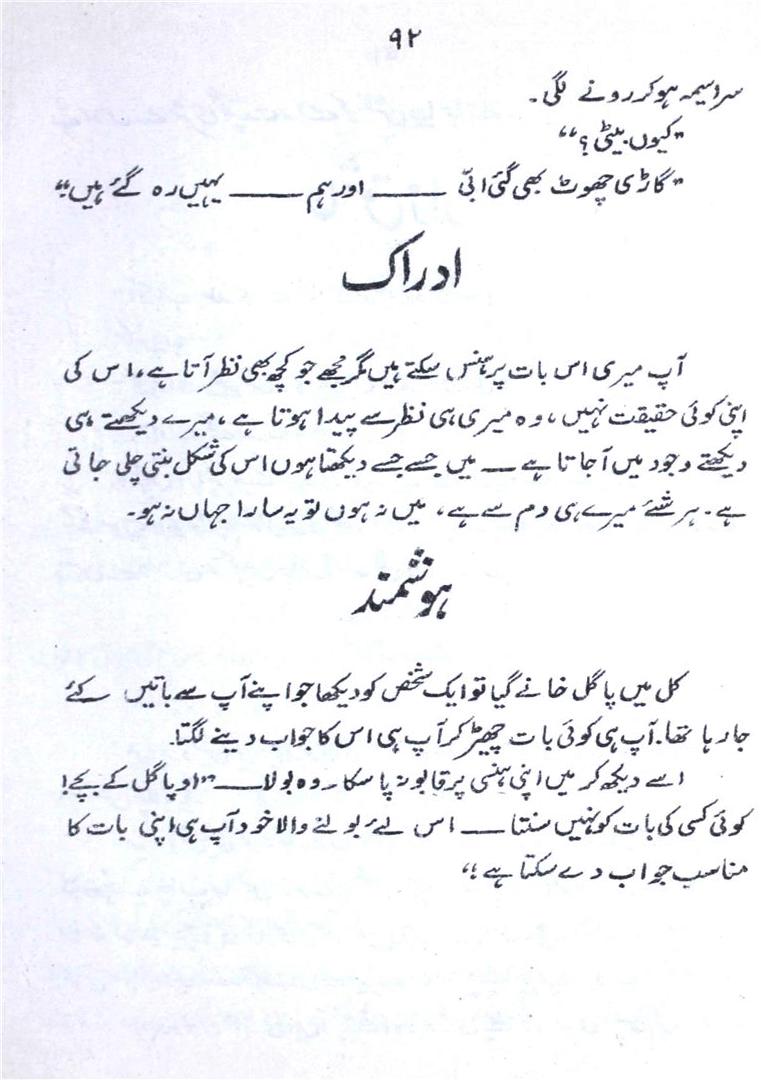 ۹۲
سراسیمہ ہو کر رونے لگی۔
"کیوں بیٹی؟"
"گاڑی چھوٹ بھی گئی ابّی ـــــ اور ہم ـــــ یہیں رہ گئے ہیں۔"
ادراک
آپ میری اس بات پر ہنس سکتے ہیں مگر مجھے جو کچھ بھی نظر آتا ہے، اس کی
اپنی کوئی حقیقت نہیں، وہ میری ہی نظر سے پیدا ہوتا ہے، میرے دیکھتے ہی
دیکھتے وجود میں آجاتا ہے ــــ میں جسے جسے دیکھتا ہوں اس کی شکل بنتی چلی جاتی
ہے۔ ہر شئے میرے ہی دم سے ہے، میں نہ ہوں تو یہ سارا جہاں نہ ہو۔
ہوشمند
کل میں پاگل خانے گیا تو ایک شخص کو دیکھا جو اپنے آپ سے باتیں کئے
جا رہا تھا۔ آپ ہی کوئی بات چھیڑ کر آپ ہی اس کا جواب دینے لگتا۔
اسے دیکھ کر میں اپنی ہنسی پر قابو نہ پا سکا۔ وہ بولا ــــ "او پاگل کے بچے!
کوئی کسی کی بات کو نہیں سنتا ــــ اس لئے بولنے والا خود آپ ہی اپنی بات کا
مناسب جواب دے سکتا ہے!"